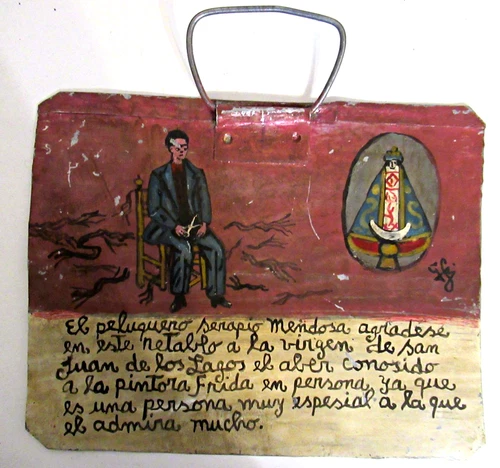 El peluquero serapio Meñdosa agradese
en este retablo a la virgen de san
Juan de los Lagos el aber conosido
a la pintora Frida en persona, ya que
es una persona muy espesial a la que
el admira mucho.